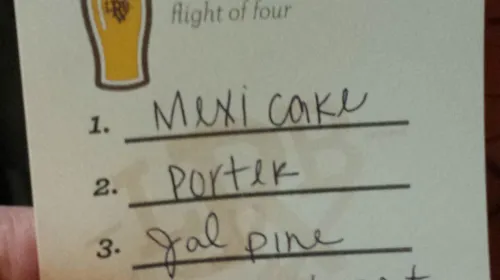 flight of four
1. Mexi cake
2. Porter
3. Jal pine